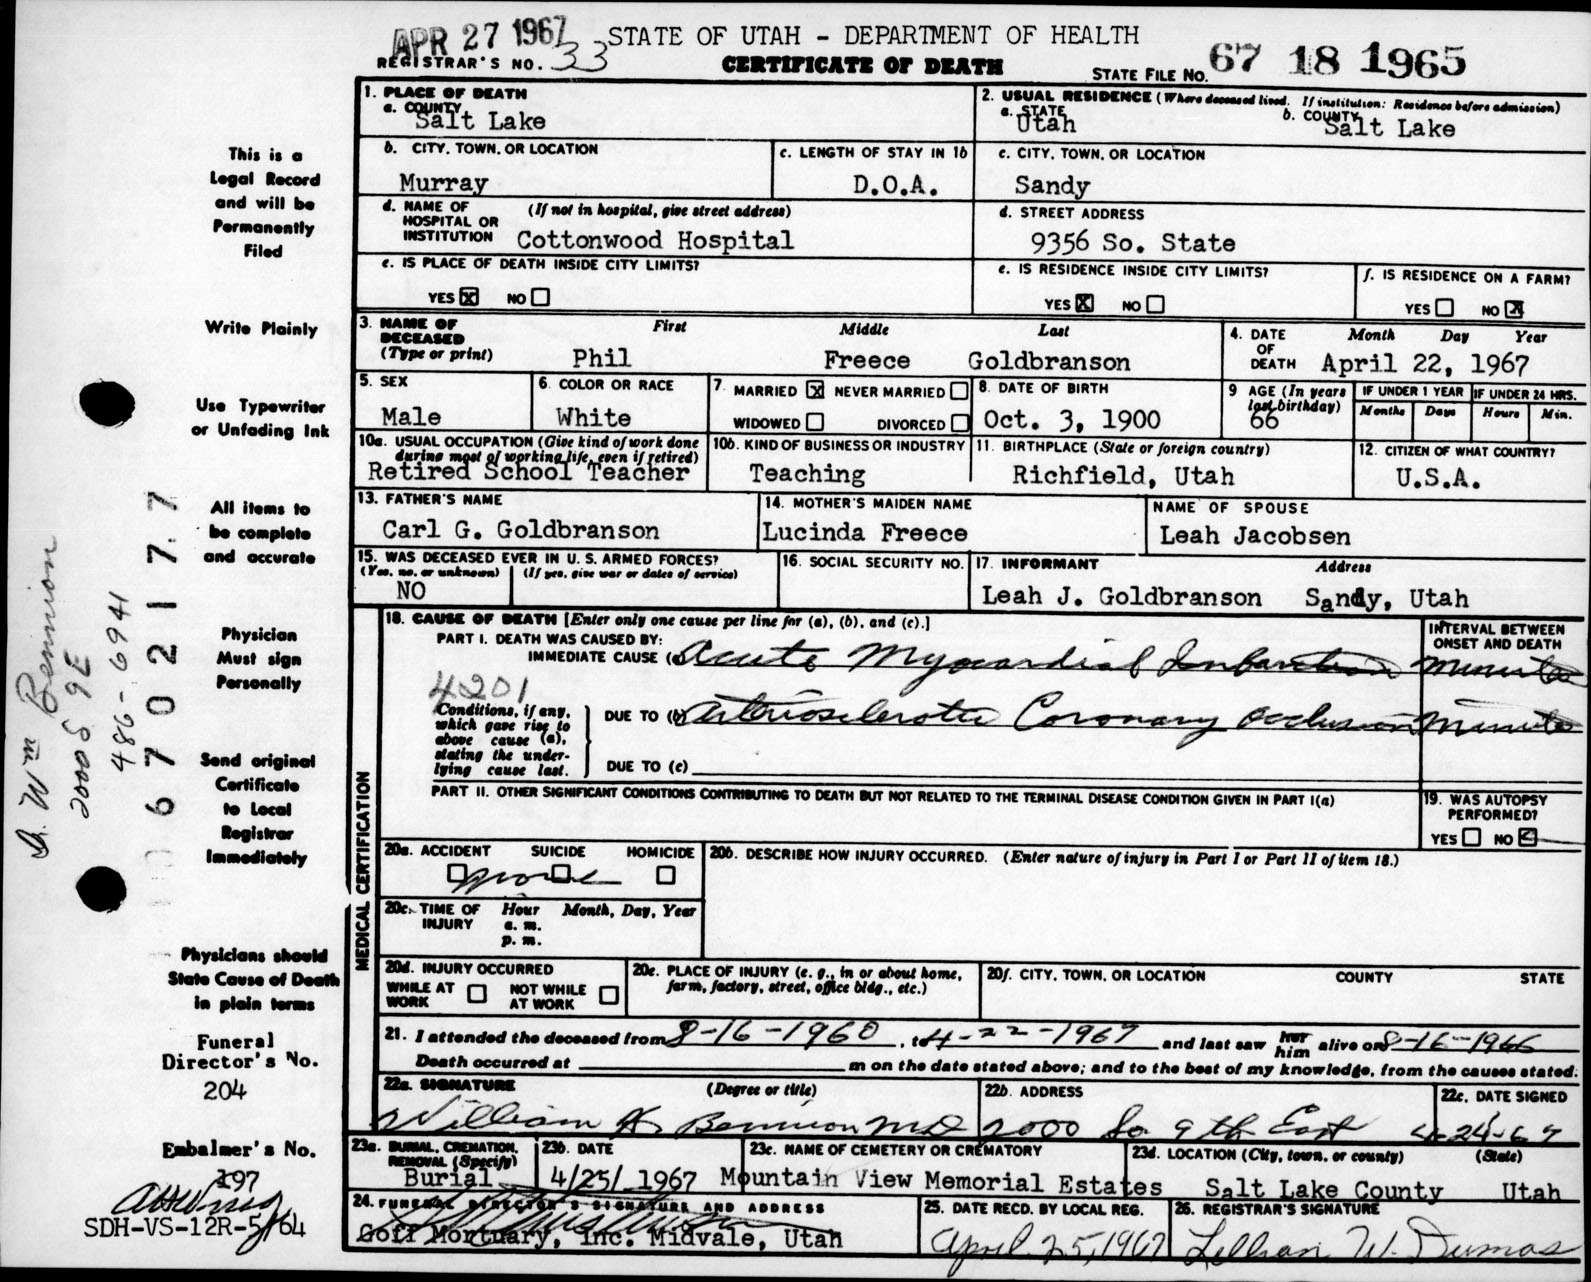 APR 27 1967 STATE OF UTAH - DEPARTMENT OF HEALTH
REGISTRAR'S NO. 33 CERTIFICATE OF DEATH STATE FILE NO. 67 18 1965
1. PLACE OF DEATH
a. COUNTY
Salt Lake
2. USUAL RESIDENCE (Where deceased lived. If institution: Residence before admission)
a. STATE b. COUNTY
Utah Salt Lake
b. CITY, TOWN, OR LOCATION c. LENGTH OF STAY IN 1b c. CITY, TOWN, OR LOCATION
Murray D.O.A. Sandy
d. NAME OF HOSPITAL OR INSTITUTION (If not in hospital, give street address)
Cottonwood Hospital
d. STREET ADDRESS
9356 So. State
e. IS PLACE OF DEATH INSIDE CITY LIMITS?
YES X NO
e. IS RESIDENCE INSIDE CITY LIMITS?
YES X NO
f. IS RESIDENCE ON A FARM?
YES NO X
3. NAME OF DECEASED (Type or print) First Middle Last
Phil Freece Goldbranson
4. DATE OF DEATH Month Day Year
April 22, 1967
5. SEX
Male
6. COLOR OR RACE
White
7. MARRIED X NEVER MARRIED
WIDOWED DIVORCED
8. DATE OF BIRTH
Oct. 3, 1900
9 AGE (In years last birthday)
66
IF UNDER 1 YEAR IF UNDER 24 HRS.
Months Days Hours Min.
10a. USUAL OCCUPATION (Give kind of work done during most of working life, even if retired)
Retired School Teacher
10b. KIND OF BUSINESS OR INDUSTRY
Teaching
11. BIRTHPLACE (State or foreign country)
Richfield, Utah
12. CITIZEN OF WHAT COUNTRY?
U.S.A.
13. FATHER'S NAME
Carl G. Goldbranson
14. MOTHER'S MAIDEN NAME
Lucinda Freece
NAME OF SPOUSE
Leah Jacobsen
15. WAS DECEASED EVER IN U. S. ARMED FORCES?
(Yes, no, or unknown) (If yes, give war or dates of service)
NO
16. SOCIAL SECURITY NO.
17. INFORMANT Address
Leah J. Goldbranson Sandy, Utah
18. CAUSE OF DEATH [Enter only one cause per line for (a), (b), and (c).]
PART I. DEATH WAS CAUSED BY:
INTERVAL BETWEEN ONSET AND DEATH
IMMEDIATE CAUSE (a) Acute Myocardial Infarction Minutes
4201
Conditions, if any, which gave rise to above cause (a), stating the underlying cause last.
DUE TO (b) Arteriosclerotic Coronary Occlusion Minutes
DUE TO (c)
PART II. OTHER SIGNIFICANT CONDITIONS CONTRIBUTING TO DEATH BUT NOT RELATED TO THE TERMINAL DISEASE CONDITION GIVEN IN PART I(a)
19. WAS AUTOPSY PERFORMED?
YES NO
MEDICAL CERTIFICATION
20a. ACCIDENT SUICIDE HOMICIDE
none
20b. DESCRIBE HOW INJURY OCCURRED. (Enter nature of injury in Part I or Part II of item 18.)
20c. TIME OF INJURY Hour Month, Day, Year
a. m.
p. m.
20d. INJURY OCCURRED
WHILE AT WORK NOT WHILE AT WORK
20e. PLACE OF INJURY (e. g., in or about home, farm, factory, street, office bldg., etc.)
20f. CITY, TOWN, OR LOCATION COUNTY STATE
21. I attended the deceased from 8-16-1960, to 4-22-1967 and last saw her him alive on 8-16-1966
Death occurred at m on the date stated above; and to the best of my knowledge, from the causes stated.
22a. SIGNATURE (Degree or title) 22b. ADDRESS 22c. DATE SIGNED
William H. Bennion MD 2000 So 9th East 4-24-67
23a. BURIAL, CREMATION, REMOVAL (Specify)
Burial
23b. DATE
4/25/ 1967
23c. NAME OF CEMETERY OR CREMATORY
Mountain View Memorial Estates
23d. LOCATION (City, town, or county) (State)
Salt Lake County Utah
24. FUNERAL DIRECTOR'S SIGNATURE AND ADDRESS
Goff Mortuary, Inc. Midvale, Utah
25. DATE RECD. BY LOCAL REG.
April 25, 1967
26. REGISTRAR'S SIGNATURE
Lillian W. Dumas
This is a
Legal Record
and will be
Permanently
Filed
Write Plainly
Use Typewriter
or Unfading Ink
All items to
be complete
and accurate
Physician
Must sign
Personally
Send original
Certificate
to Local
Registrar
Immediately
Physicians should
State Cause of Death
in plain terms
Funeral
Director's No.
204
Embalmer's No.
197
SDH-VS-12R-5/64
Dr. Wm Bennion
2000 S 9 E
486-6941
067021 7.7